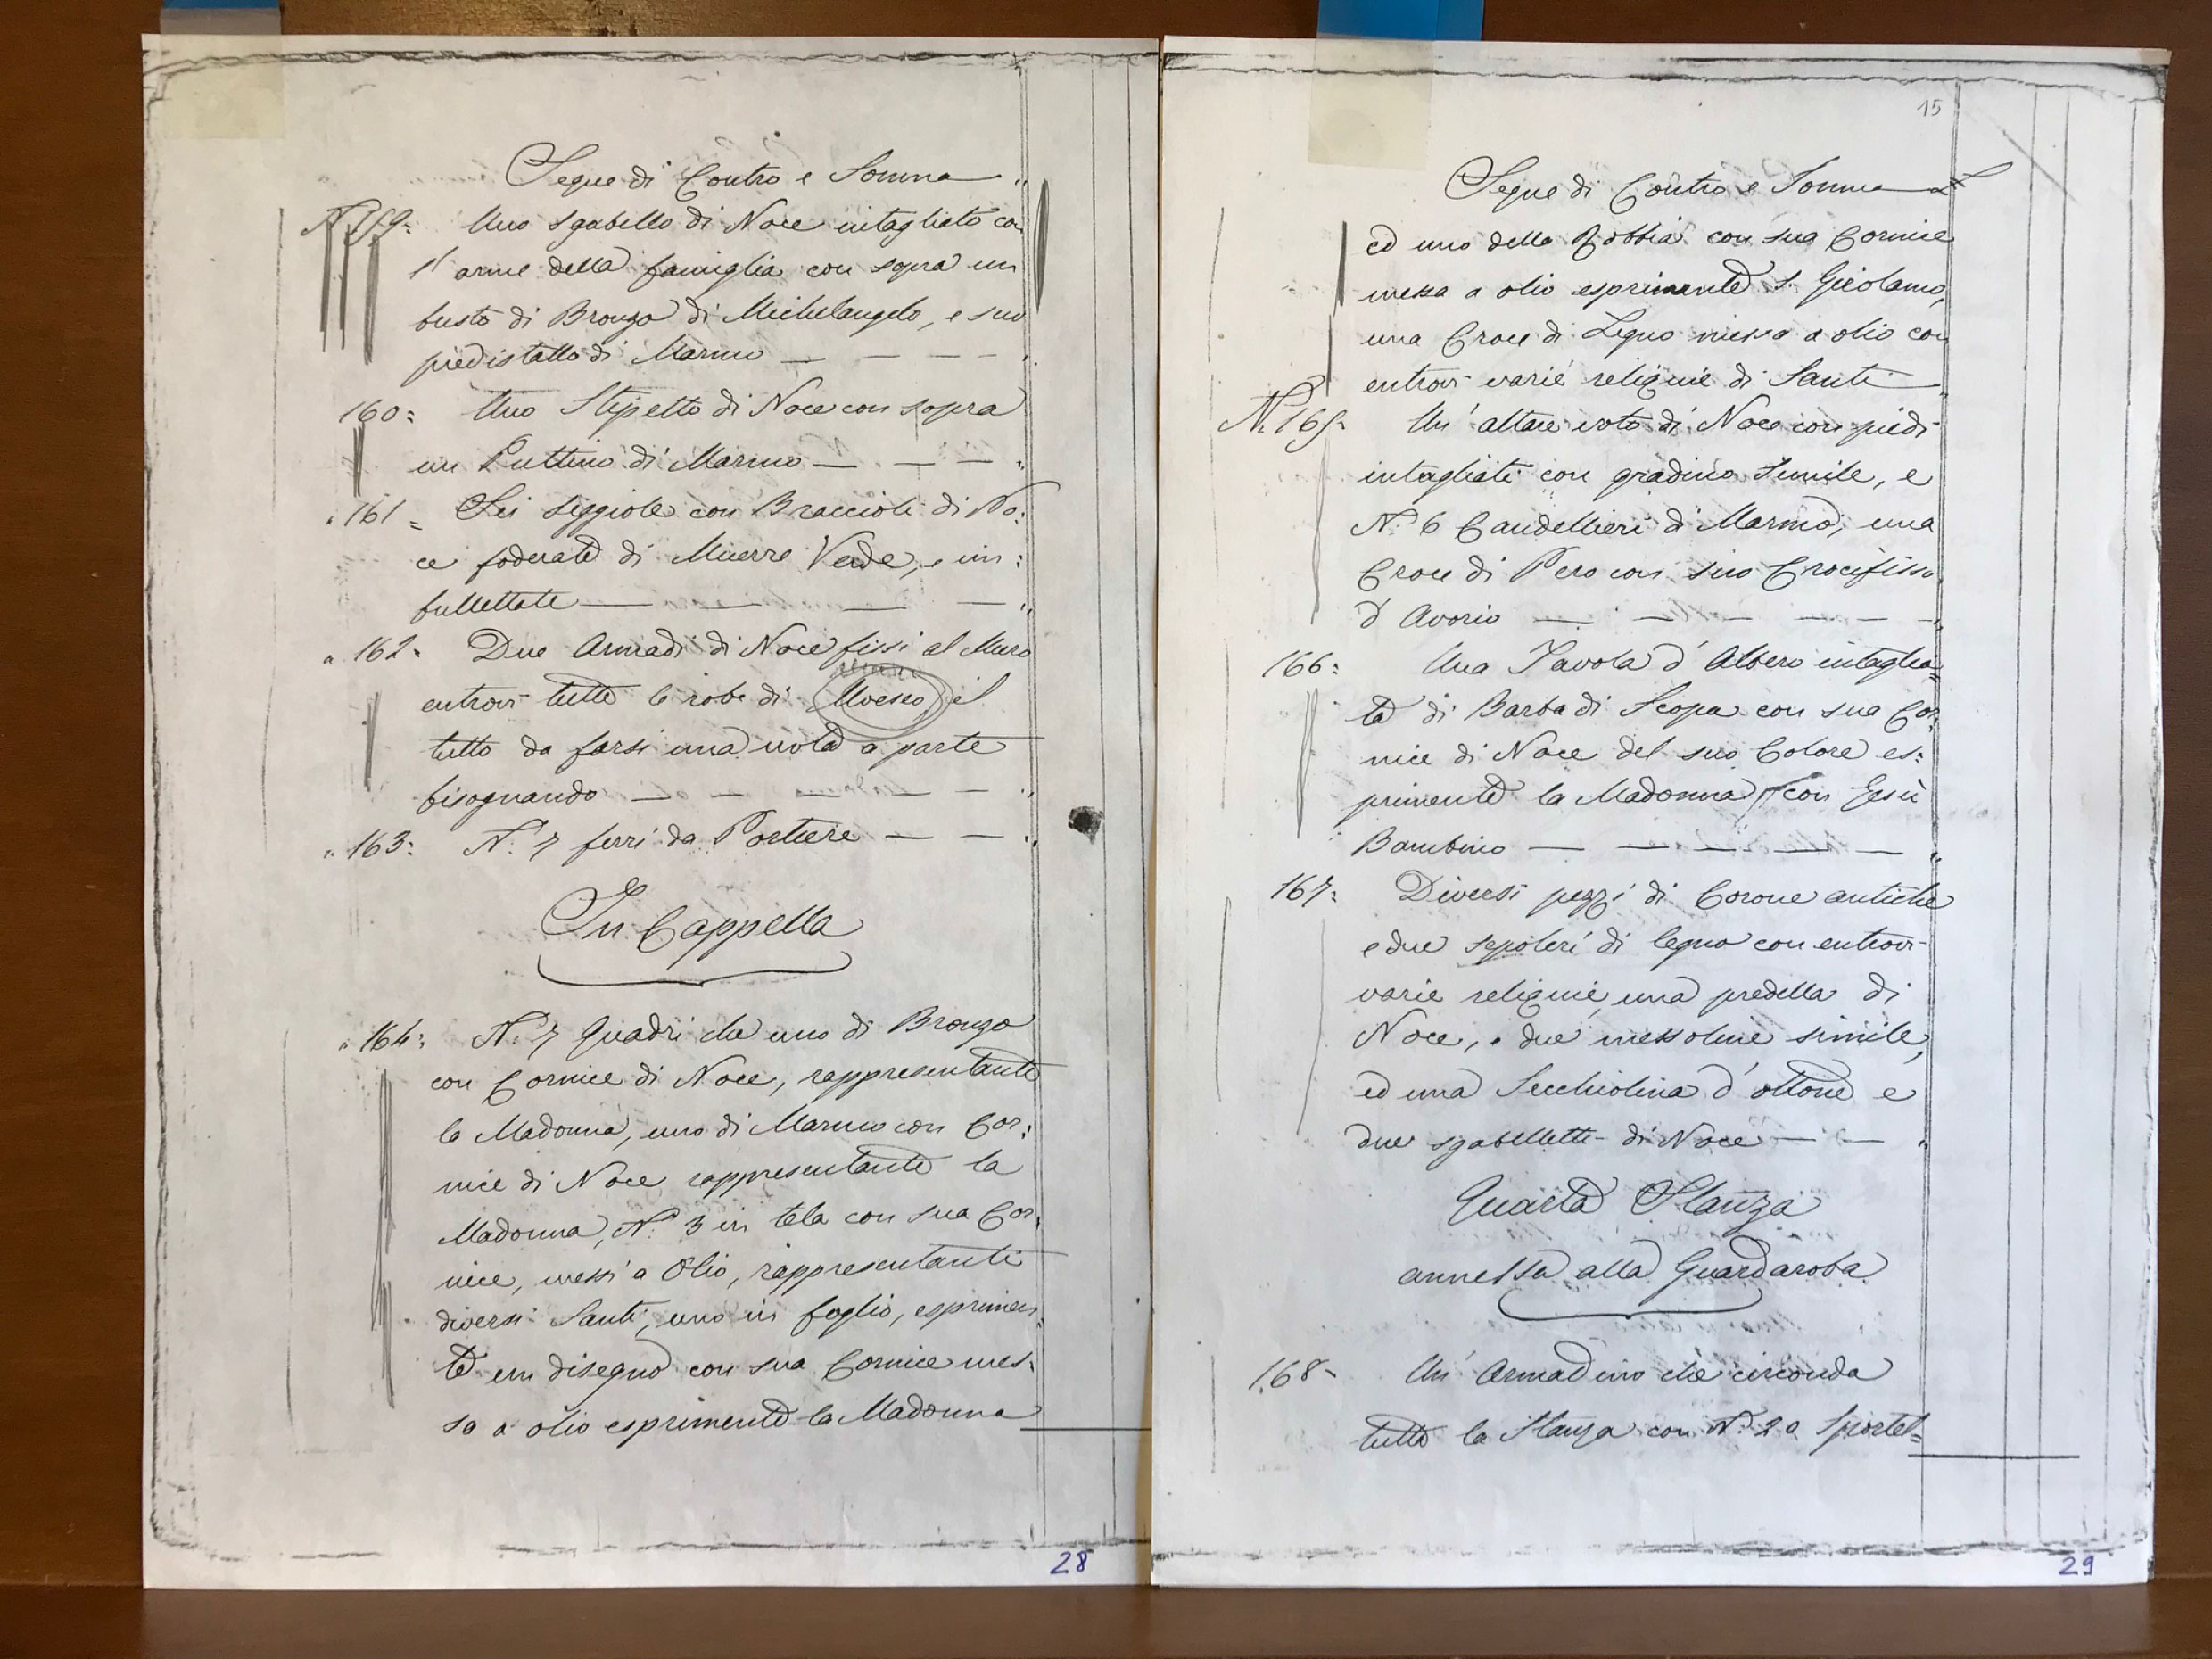 Segue di Contro e Somma "
N. 159= Uno Sgabello di Noce intagliato co
l'arme della famiglia con sopra un
busto di Bronzo di Michelangelo, e suo
piedistallo di Marmo — — — — "
160= Uno Stipetto di Noce con sopra
un Puttino di Marmo — — — "
" 161= Sei Seggiole con Braccioli di No:
ce foderate di Muerre Verde, e im:
bullettate — — — — "
" 162= Due Armadi di Noce fissi al Muro
entrovi tutte le robe di il
tutto da farsi una nota a parte
bisognando — — — — — "
" 163= N. 7 ferri da Portiere — — "
In Cappella
" 164= N. 7 Quadri che uno di Bronzo
con Cornice di Noce, rappresentante
la Madonna, uno di Marmo con Cor:
nice di Noce rappresentante la
Madonna, N. 3 in tela con sua Cor:
nice, messi a Olio, rappresentanti
diversi Santi, uno in foglio, esprimen=
te un disegno con sua Cornice mes:
sa a olio esprimente la Madonna
28
15
Segue di Contro e Somma £
ed uno della Robbia con sua Cornice
messa a olio esprimente S. Girolamo,
una Croce di Legno messa a olio con
entrovi varie reliquie di Santi "
N. 165= Un'altare voto di Noce con piedi
intagliati con gradino Simile, e
N. 6 Candellieri di Marmo, una
Croce di Pero con suo Crocifisso
d'Avorio — — — — — "
166= Una Tavola d'Albero intaglia=
ta di Barba di Scopa con sua Cor:
nice di Noce del suo Colore es:
primente la Madonna con Gesù
Bambino — — — — — "
167= Diversi pezzi di Corone antiche
e due sepolcri di legno con entrovi
varie reliquie, una predella di
Noce, e due messoline simile,
ed una Secchiolina d'ottone e
due sgabelletti di Noce — — "
Quarta Stanza
annessa alla Guardaroba
168= Un'Armadino che circonda
tutta la Stanza con N. 20 Sportel=
29